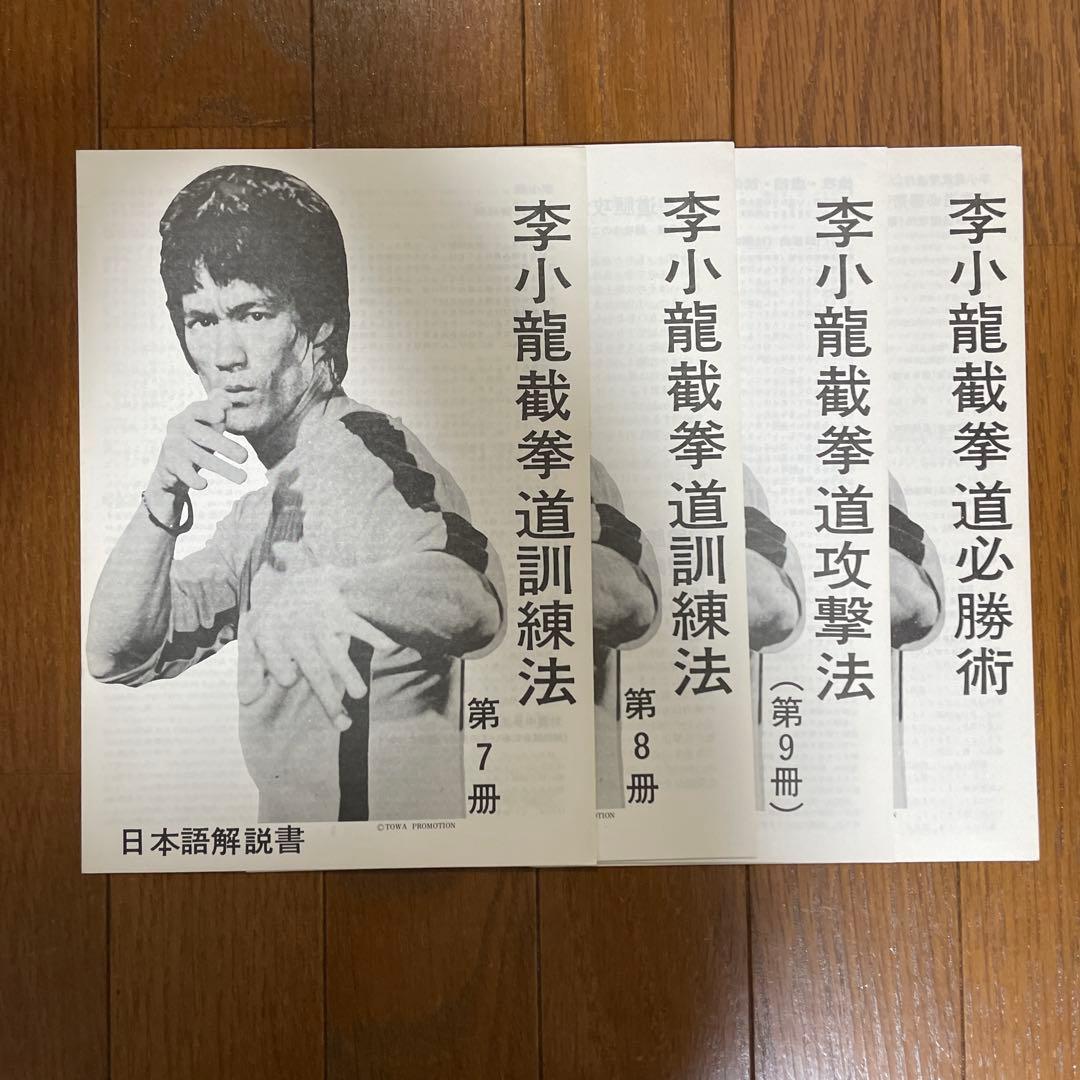 李小龍截拳道訓練法
第7冊
©TOWA PROMOTION
日本語解説書
李小龍截拳道訓練法
第8冊
TION
李小龍截拳道攻撃法
（第9冊）
李小龍截拳道必勝術